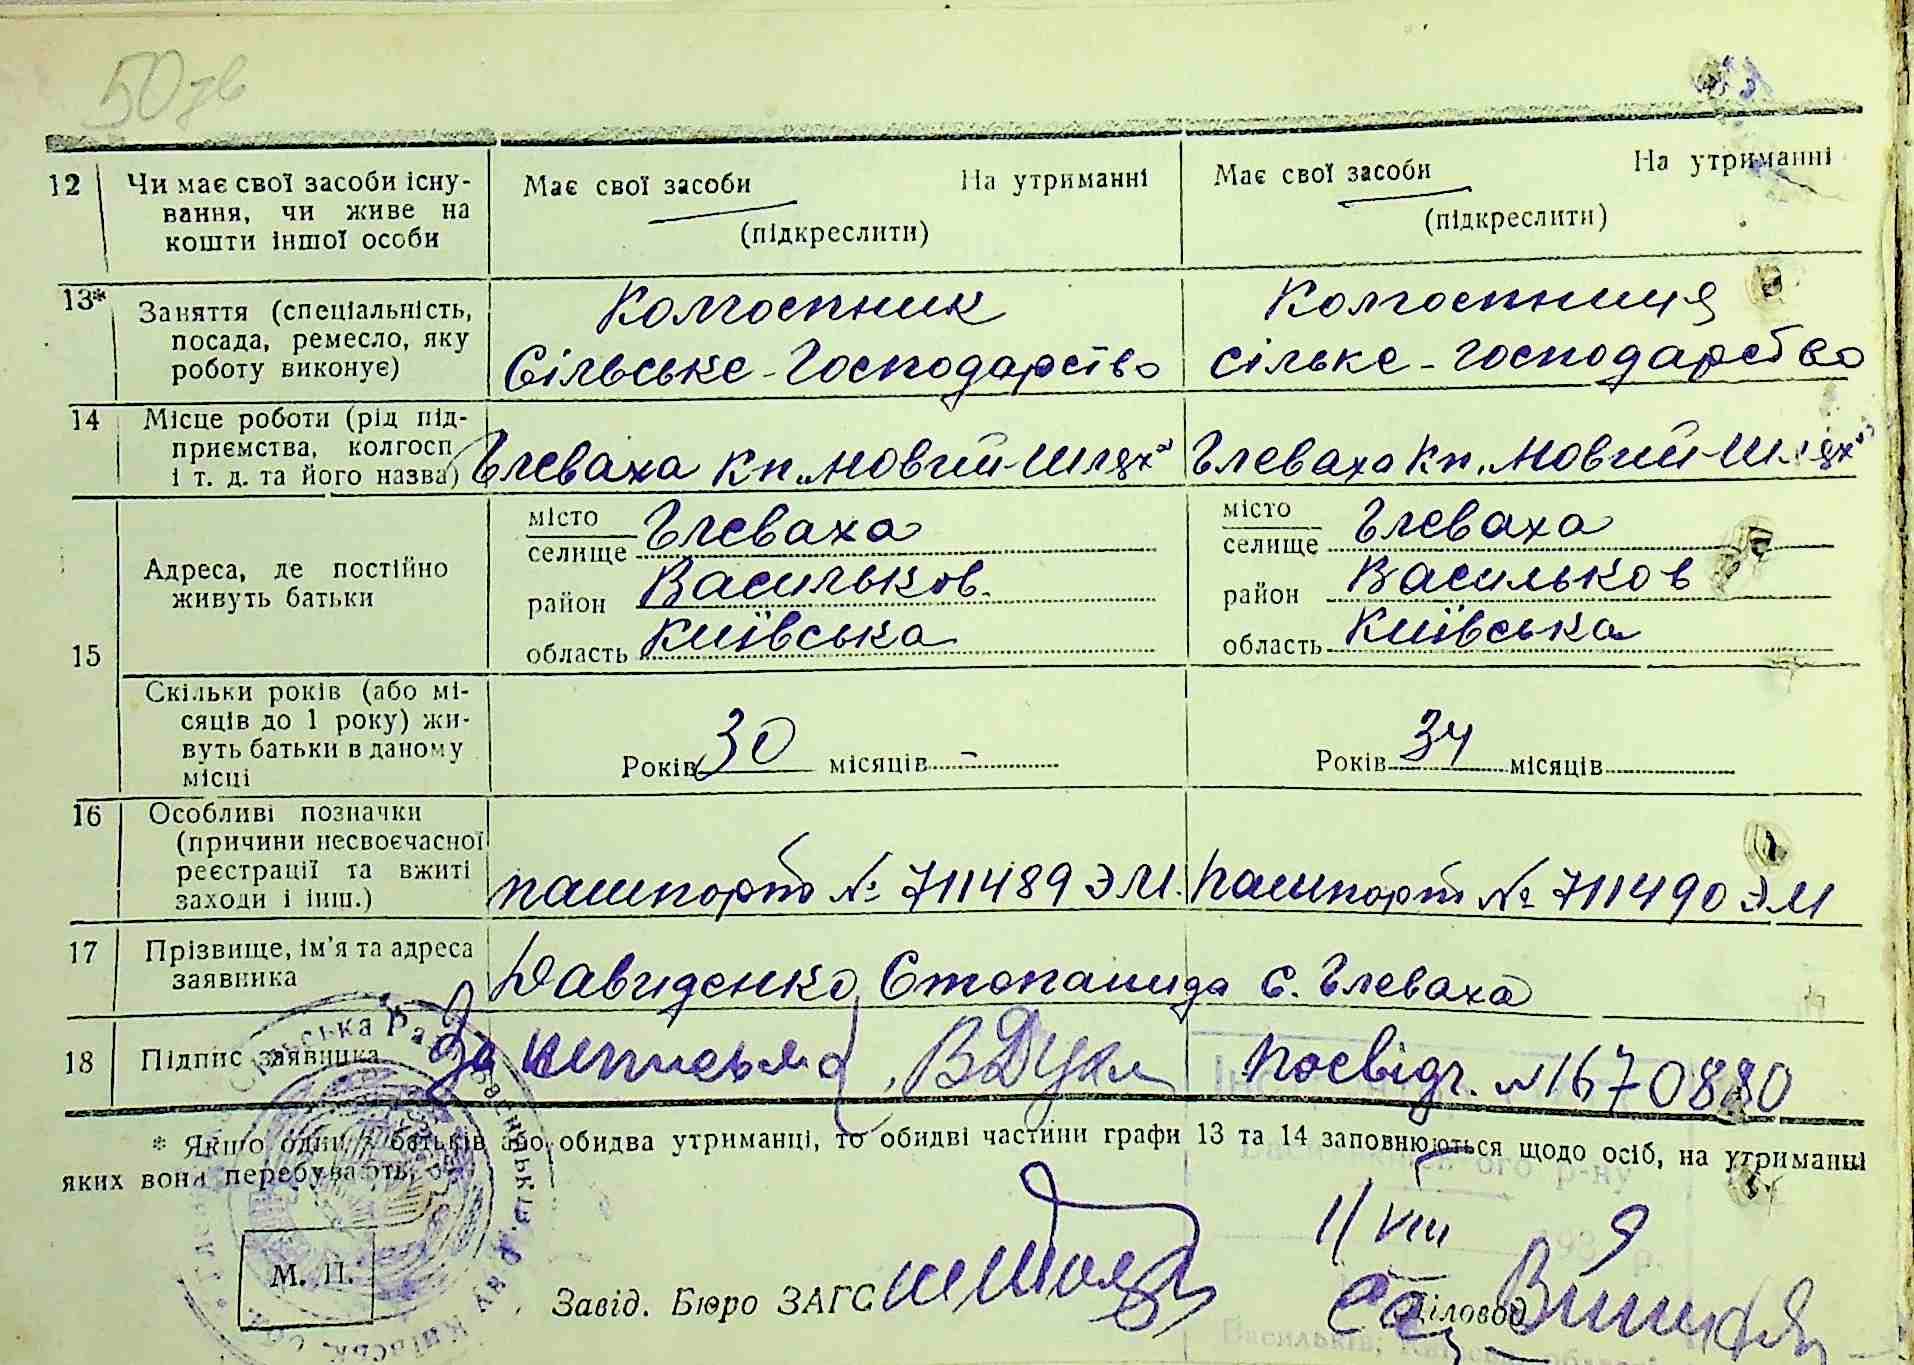 50 зв
12 Чи має свої засоби існу- Має свої засоби На утриманні Має свої засоби На утриманні
вання, чи живе на (підкреслити) (підкреслити)
кошти іншої особи
13* Заняття (спеціальність, Колгоспник Колгоспниця
посада, ремесло, яку
роботу виконує) Сільське-Господарство сільке-господарство
14 Місце роботи (рід під-
приємства, колгосп
і т. д. та його назва) Глеваха кп. „Новий-Шлях" Глеваха кп. „Новий-Шлях"
15 Адреса, де постійно
живуть батьки
місто Глеваха місто Глеваха
селище селище
район Васильков. район Васильков
область Київська область Київська
Скільки років (або мі-
сяців до 1 року) жи-
вуть батьки в даному Років 30 місяців - Років 34 місяців
місці
16 Особливі позначки
(причини несвоєчасної
реєстрації та вжиті пашпорт № 711489 ЭМ. пашпорт № 711490 ЭМ
заходи і інш.)
17 Прізвище, ім'я та адреса Давиденко Степанида с. Глеваха
заявника
18 Підпис заявника За посвідч. № 1670880
* Якщо один з батьків або обидва утриманці, то обидві частини графи 13 та 14 заповнюються щодо осіб, на утриманні
яких вони перебувають.
11/VIII
М. П.
Завід. Бюро ЗАГС Діловод